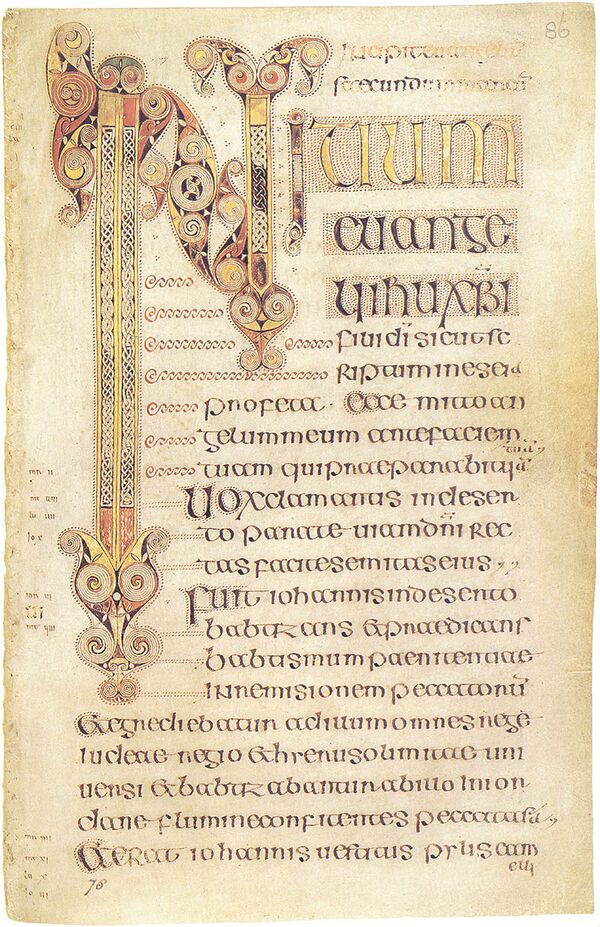 86
INITIUM
euange
lii ihū xpi
fili dī sicut sc
riptum in eseia
profeta · Ecce mitto an
gelum meum ante faciem
tuam qui praeparabit uiā
tuā
Uox clamantis in deser
to parate uiam dn̄i rec
tas facite semitas eius
Fuit iohannis in deserto
babtizans & praedicans
babtismum paenitentiae
in remisionem peccatorū
& egrediebatur ad illum omnes
iudeae regio & hierusolimitae uni
uersi & babtizabantur ab illo in ior
dane flumine confitentes peccata sua
& erat iohannis uestitus pylis cam
elli
78